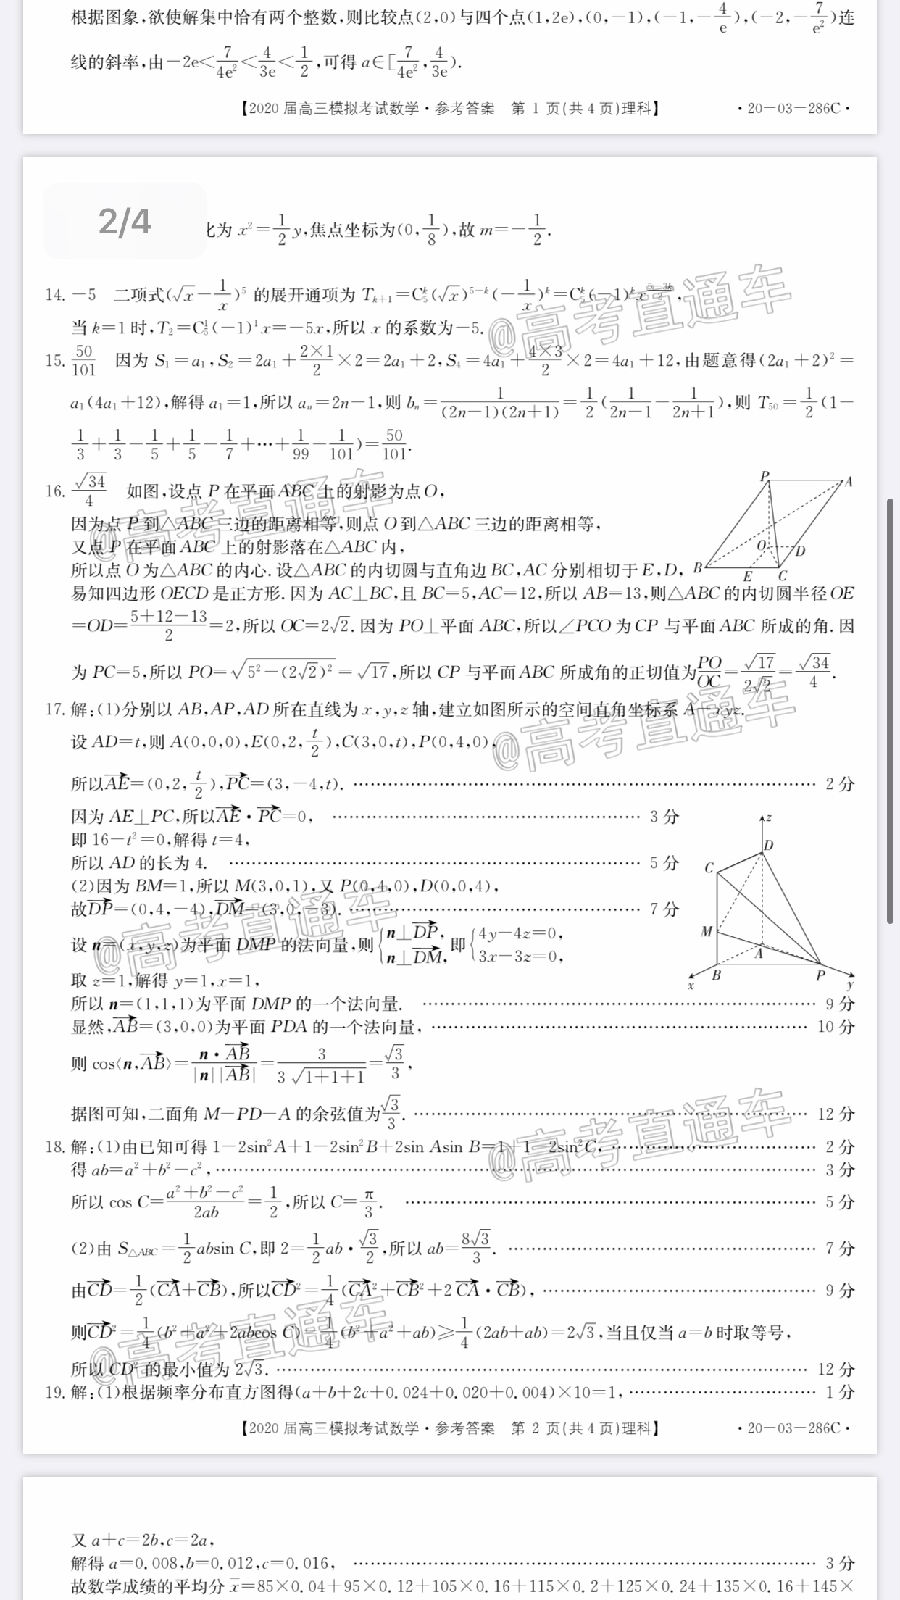 根据图象,欲使解集中恰有两个整数,则比较点(2,0)与四个点(1,2e),(0,-1),(-1,-4/e),(-2,-7/e²)连
线的斜率,由-2e<7/4e²<4/3e<1/2,可得a∈[7/4e²,4/3e).
【2020届高三模拟考试数学·参考答案 第1页(共4页)理科】 ·20-03-286C·
2/4
化为x²=1/2y,焦点坐标为(0,1/8),故m=-1/2.
14.-5 二项式(√x-1/x)⁵的展开通项为Tₖ₊₁=C₅ᵏ(√x)⁵⁻ᵏ(-1/x)ᵏ=C₅ᵏ(-1)ᵏx^((5-3k)/2),
当k=1时,T₂=C₅¹(-1)¹x=-5x,所以x的系数为-5.
15.50/101 因为S₁=a₁,S₂=2a₁+2×1/2×2=2a₁+2,S₄=4a₁+4×3/2×2=4a₁+12,由题意得(2a₁+2)²=
a₁(4a₁+12),解得a₁=1,所以aₙ=2n-1,则bₙ=1/(2n-1)(2n+1)=1/2(1/2n-1-1/2n+1),则T₅₀=1/2(1-
1/3+1/3-1/5+1/5-1/7+…+1/99-1/101)=50/101.
16.√34/4 如图,设点P在平面ABC上的射影为点O,
因为点P到△ABC三边的距离相等,则点O到△ABC三边的距离相等,
又点P在平面ABC上的射影落在△ABC内,
所以点O为△ABC的内心.设△ABC的内切圆与直角边BC,AC分别相切于E,D,
易知四边形OECD是正方形.因为AC⊥BC,且BC=5,AC=12,所以AB=13,则△ABC的内切圆半径OE
=OD=5+12-13/2=2,所以OC=2√2.因为PO⊥平面ABC,所以∠PCO为CP与平面ABC所成的角.因
为PC=5,所以PO=√5²-(2√2)²=√17,所以CP与平面ABC所成角的正切值为PO/OC=√17/2√2=√34/4.
P A O D B E C
17.解:(1)分别以AB,AP,AD所在直线为x,y,z轴,建立如图所示的空间直角坐标系A-xyz.
设AD=t,则A(0,0,0),E(0,2,t/2),C(3,0,t),P(0,4,0),
所以AE→=(0,2,t/2),PC→=(3,-4,t). …… 2分
因为AE⊥PC,所以AE→·PC→=0, …… 3分
即16-t²=0,解得t=4,
所以AD的长为4. …… 5分
(2)因为BM=1,所以M(3,0,1),又P(0,4,0),D(0,0,4),
故DP→=(0,4,-4),DM→=(3,0,-3). …… 7分
设n=(x,y,z)为平面DMP的法向量,则{n⊥DP→,n⊥DM→,即{4y-4z=0,3x-3z=0,
取z=1,解得y=1,x=1,
所以n=(1,1,1)为平面DMP的一个法向量. …… 9分
显然,AB→=(3,0,0)为平面PDA的一个法向量, …… 10分
则cos⟨n,AB→⟩=n·AB→/|n||AB→|=3/3√1+1+1=√3/3,
据图可知,二面角M-PD-A的余弦值为√3/3. …… 12分
z D C M A B P x y
18.解:(1)由已知可得1-2sin²A+1-2sin²B+2sin Asin B=1+1-2sin²C, …… 2分
得ab=a²+b²-c², …… 3分
所以cos C=a²+b²-c²/2ab=1/2,所以C=π/3. …… 5分
(2)由S△ABC=1/2absin C,即2=1/2ab·√3/2,所以ab=8√3/3. …… 7分
由CD→=1/2(CA→+CB→),所以CD→²=1/4(CA→²+CB→²+2CA→·CB→), …… 9分
则CD→²=1/4(b²+a²+2abcos C)=1/4(b²+a²+ab)≥1/4(2ab+ab)=2√3,当且仅当a=b时取等号,
所以CD²的最小值为2√3. …… 12分
19.解:(1)根据频率分布直方图得(a+b+2c+0.024+0.020+0.004)×10=1, …… 1分
【2020届高三模拟考试数学·参考答案 第2页(共4页)理科】 ·20-03-286C·
又a+c=2b,c=2a,
解得a=0.008,b=0.012,c=0.016, …… 3分
故数学成绩的平均分x̄=85×0.04+95×0.12+105×0.16+115×0.2+125×0.24+135×0.16+145×
@高考直通车
@高考直通车
@高考直通车
@高考直通车
@高考直通车
@高考直通车